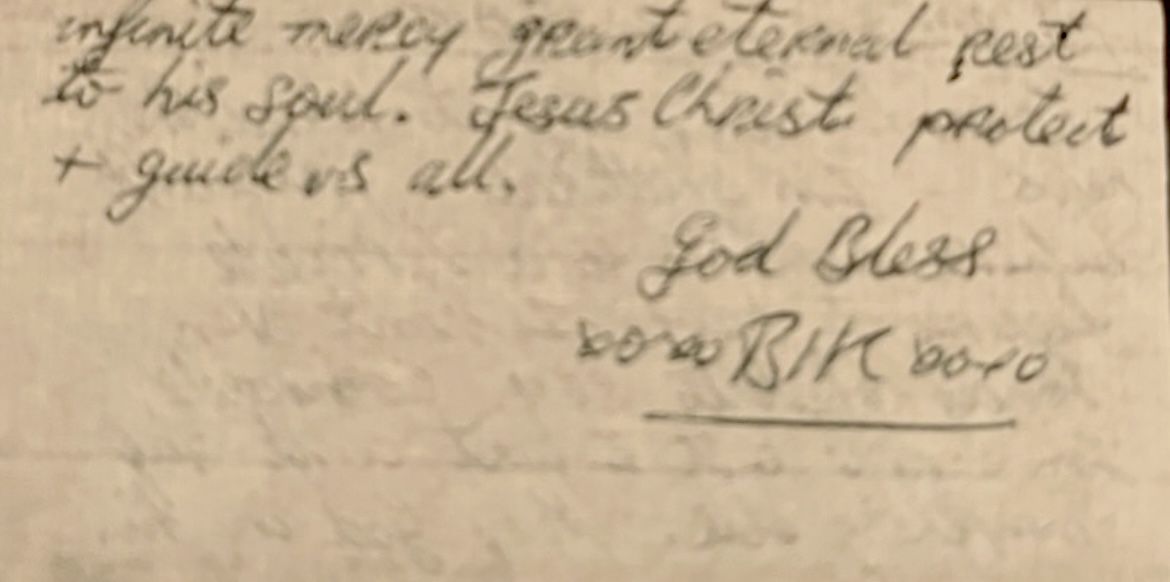 infinite mercy grant eternal rest
to his soul. Jesus Christ protect
+ guide us all.
God Bless
xoxo BIK xoxo